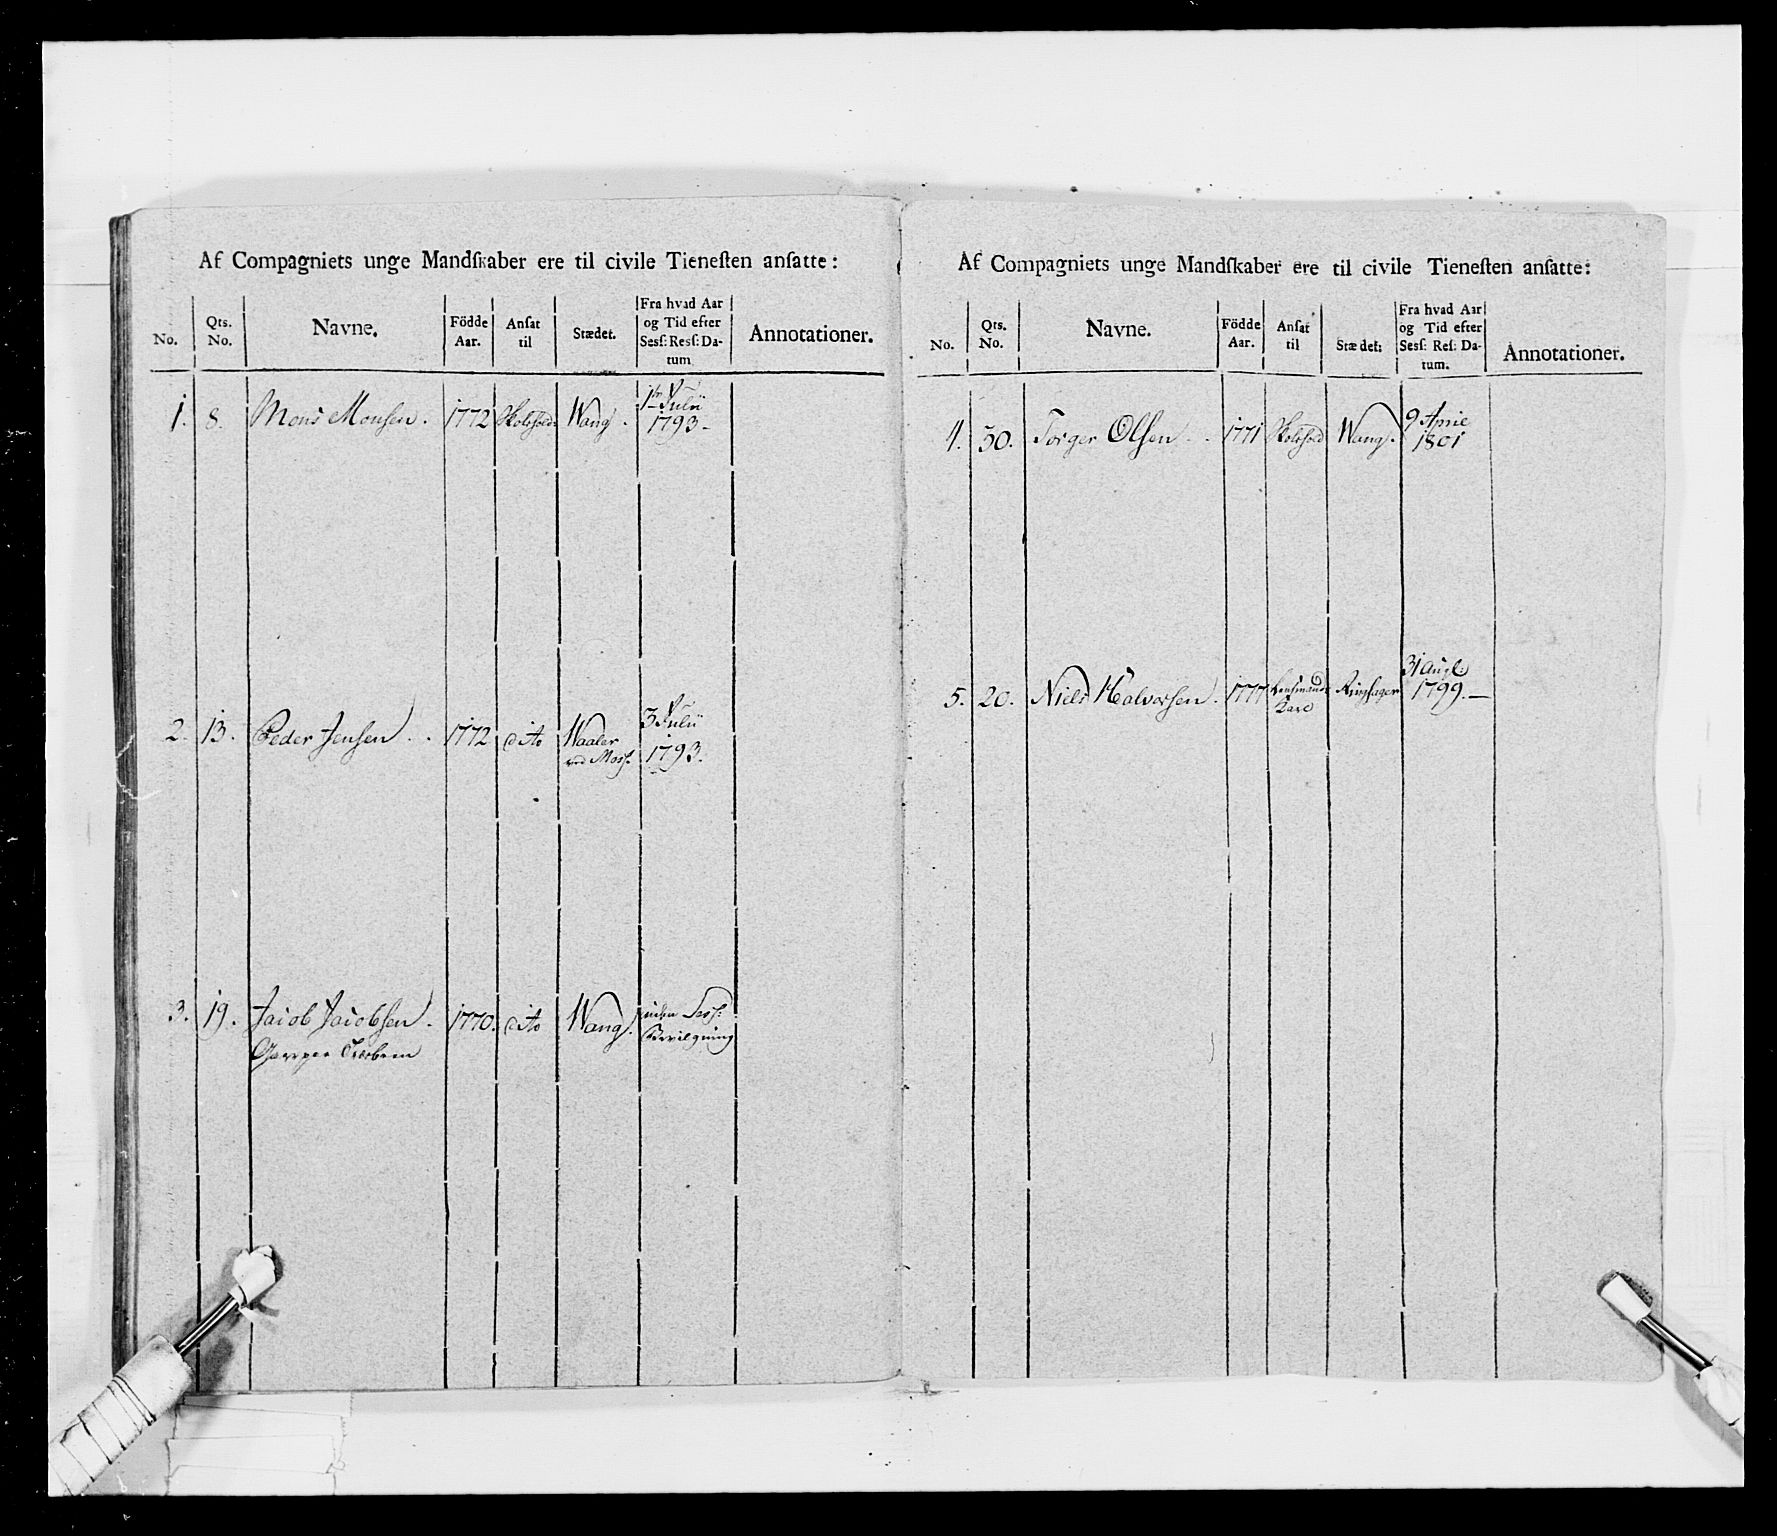 Af Compagniets unge Mandſkaber ere til civile Tieneſten anſatte:
No. Qts. No. Navne. Födde Aar. Anſat til Stædet. Fra hvad Aar og Tid efter Sesſ: Resſ: Datum Annotationer.
1. 8. Mons Monsen. 1772 Skolehold. Wang. 1ste Julii 1793.
2. 13. Peder Jensen.. 1772 dito Waaler ved Moss. 3 Julii 1793.
3. 19. Jacob Jacobsen. 1770. dito Wang. uden Sess: Bevilgning
Af Compagniets unge Mandſkaber ere til civile Tieneſten anſatte:
No. Qts. No. Navne. Födde Aar. Anſat til Stædet: Fra hvad Aar og Tid efter Sesſ: Reſ: Datum. Annotationer.
4. 30. Torger Olsen.. 1771 Skolehold Wang. 9 April 1801
5. 20. Niels Halvorsen. 1777 Lensmands Karl Ringsager 31 Aug: 1799.